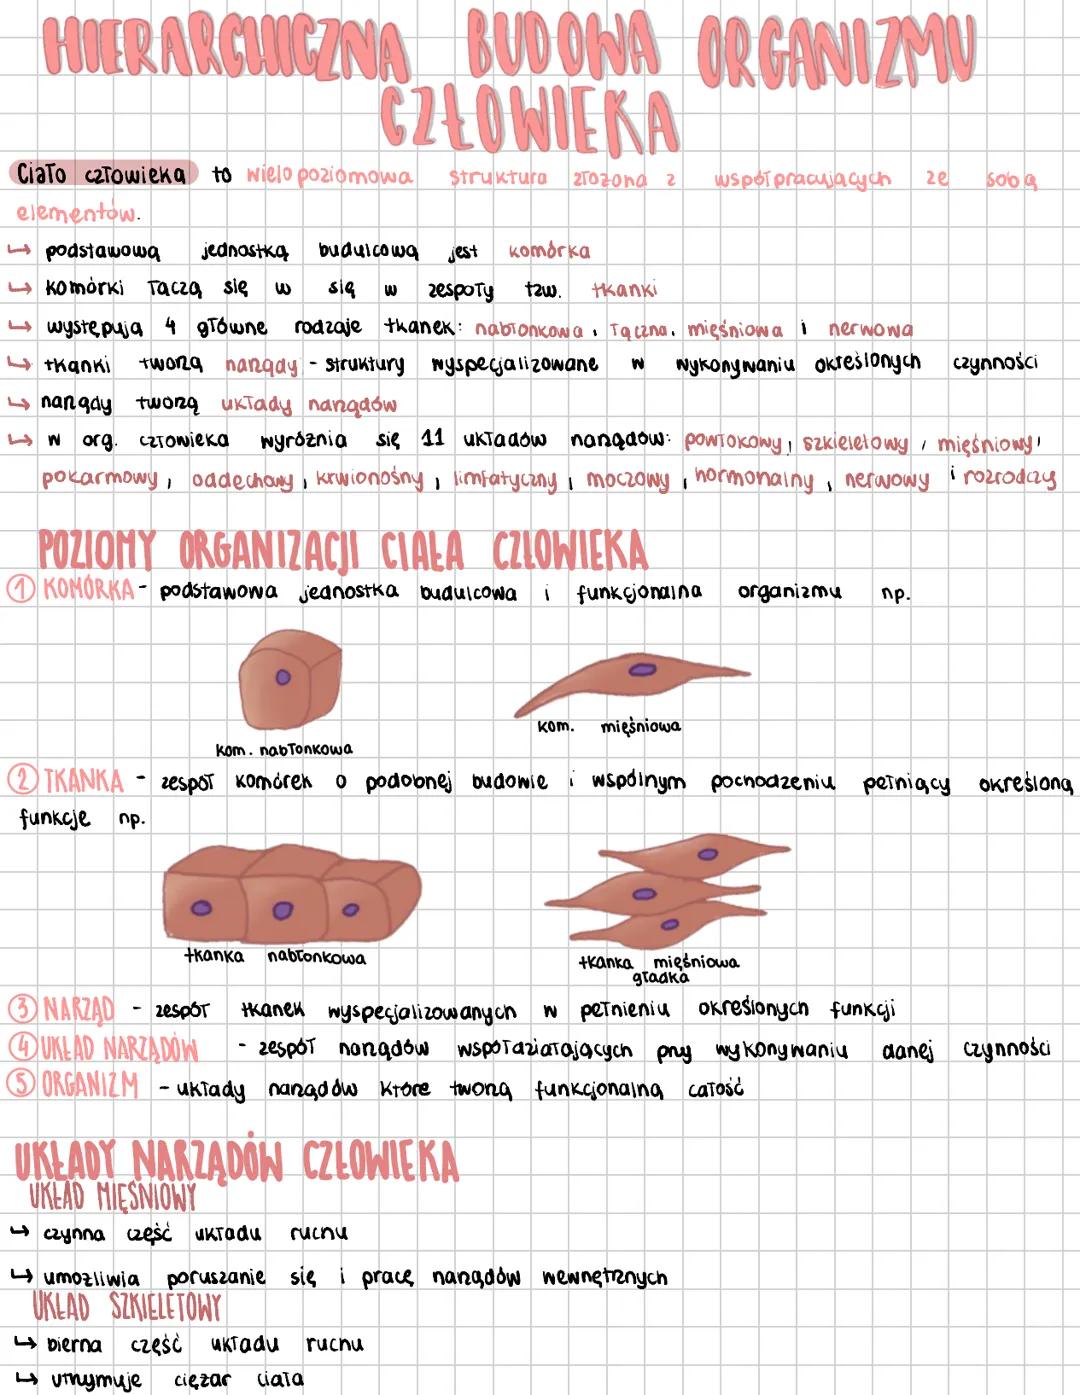 HIERARCHICZNA BUDOWA ORGANIZMU
CZŁOWIEKA
Ciało człowieka to wielopoziomowa struktura złożona z współpracujących ze sobą
elementów.
↳ podstawową jednostką budulcową jest komórka
↳ komórki łączą się w się w zespoły tzw. tkanki
↳ występują 4 główne rodzaje tkanek: nabłonkowa, łączna, mięśniowa i nerwowa
↳ tkanki tworzą narządy - struktury wyspecjalizowane w wykonywaniu określonych czynności
↳ narządy tworzą układy narządów
↳ w org. człowieka wyróżnia się 11 układów narządów: powłokowy, szkieletowy, mięśniowy,
pokarmowy, oddechowy, krwionośny, limfatyczny, moczowy, hormonalny, nerwowy i rozrodczy
POZIOMY ORGANIZACJI CIAŁA CZŁOWIEKA
① KOMÓRKA - podstawowa jednostka budulcowa i funkcjonalna organizmu np.
kom. nabłonkowa
kom. mięśniowa
② TKANKA - zespół komórek o podobnej budowie i wspólnym pochodzeniu pełniący określoną
funkcje np.
tkanka nabłonkowa
tkanka mięśniowa
gładka
③ NARZĄD - zespół tkanek wyspecjalizowanych w pełnieniu określonych funkcji
④ UKŁAD NARZĄDÓW - zespół narządów współdziałających przy wykonywaniu danej czynności
⑤ ORGANIZM - układy narządów które tworzą funkcjonalną całość
UKŁADY NARZĄDÓW CZŁOWIEKA
UKŁAD MIĘŚNIOWY
↳ czynna część układu ruchu
↳ umożliwia poruszanie się i pracę narządów wewnętrznych
UKŁAD SZKIELETOWY
↳ bierna część układu ruchu
↳ utrzymuje ciężar ciała